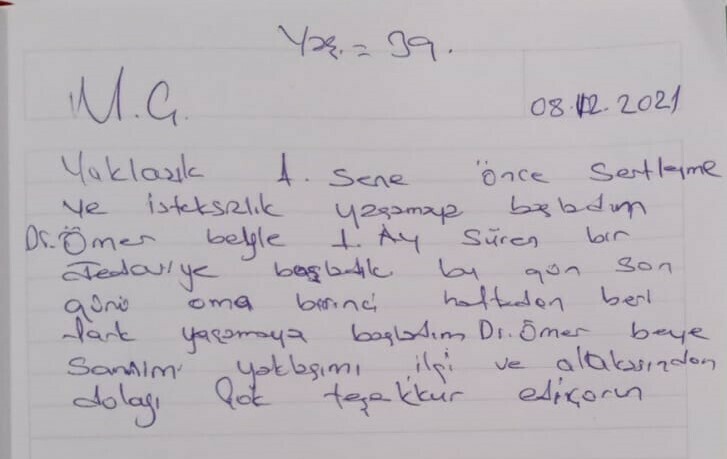 Yaş. = 39.
M.G.
08.12.2021
Yaklaşık 1. Sene önce Sertleşme
ve isteksizlik yaşamaya başladım
Dr. Ömer beyle 1. Ay Süren bir
Tedaviye başladık bu gün son
günü ama birinci haftadan beri
fark yaşamaya başladım Dr. Ömer beye
Samimi yaklaşımı ilgi ve alakasından
dolayı Çok teşekkür ediyorum